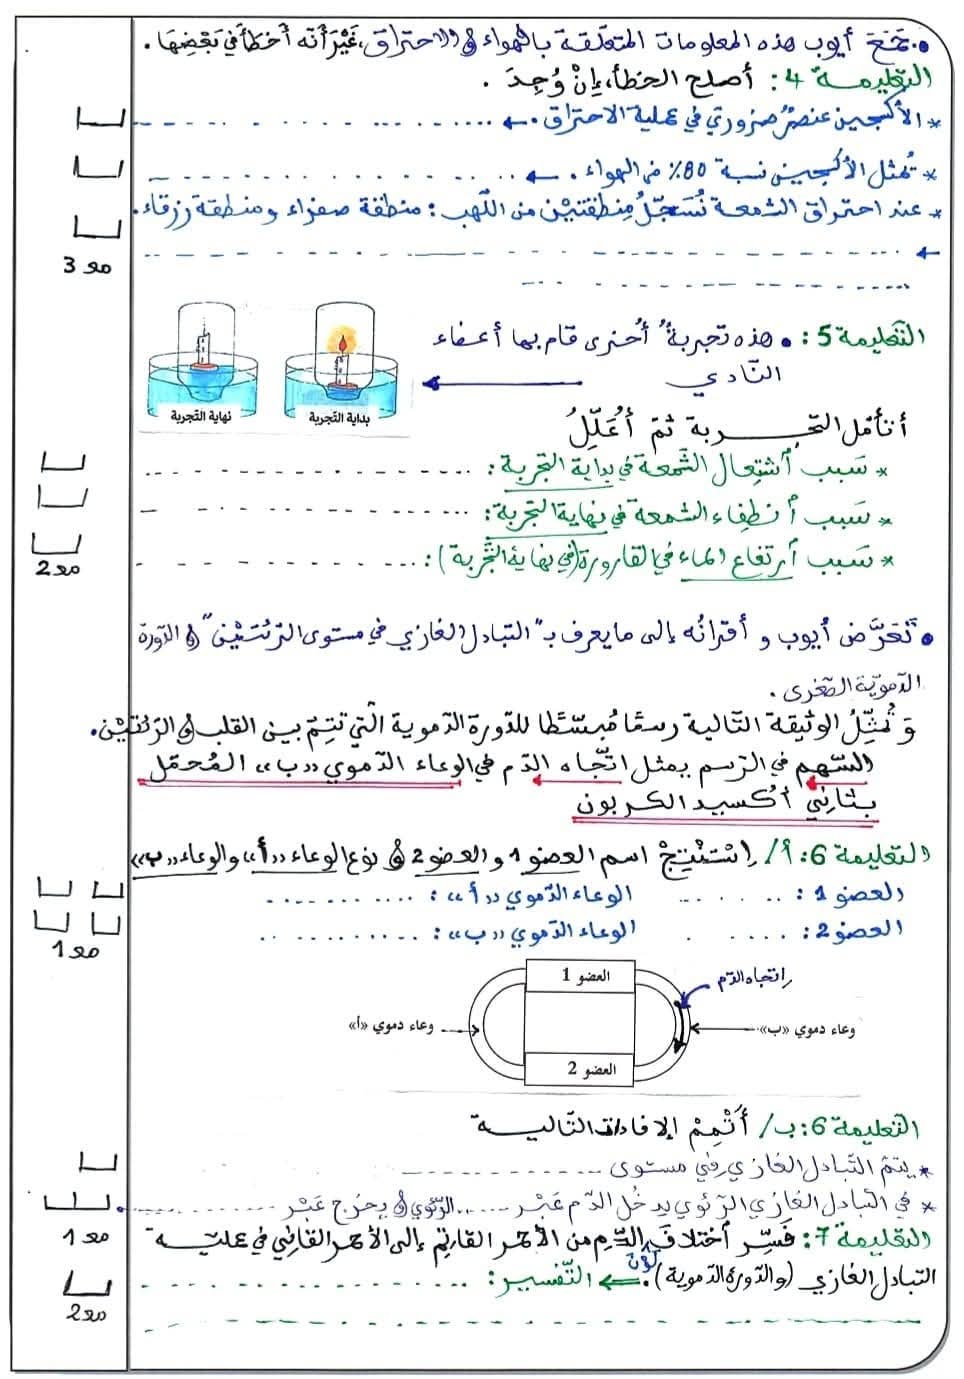 • جَمَعَ أيوب هذه المعلومات المتعلّقة بالهواء و الاحتراق، غَيْرَ أنّه أخطأ في بَعْضِهَا.
التّعليمة 4: أصلح الخطأ، إنْ وُجِدَ.
* الأكسجين عنصرٌ ضروريّ في عمليّة الاحتراق. ←
* تُمثل الأكسجين نسبة 80٪ من الهواء. ←
* عند احتراق الشّمعة نُسَجِّلُ مِنطقتيْن من اللّهب: منطقة صفراء ومنطقة زرقاء.
←
مع 3
التّعليمة 5: • هذه تجربةٌ أُخرى قام بها أعضاء
النّادي
بداية التجربة
نهاية التجربة
أتأمّل التّجربة ثمّ أُعَلِّلُ
* سَبب اُشتِعال الشّمعة في بداية التجربة:
* سَبب اُنطِفاء الشمعة في نهاية التجربة:
* سَبب اُرتفاع الماء في القارورة (في نهاية التّجربة):
مع 2
• تَعَرَّض أيوب و أقرانُه إلى ما يعرف بـ "التبادل الغازي في مستوى الرّئتيْن" و الدّورة
الدّمويّة الصّغرى.
وَ تُمثِّلُ الوثيقة التّالية رسمًا مُبسّطًا للدّورة الدّموية الّتي تتِمّ بين القلب و الرّئتيْن.
السّهم في الرّسم يمثل اتّجاه الدّم في الوعاء الدّموي «ب» المُحمّل
بثاني أكسيد الكربون
التّعليمة 6: أ/ اِسْتَنْتِجْ اسم العضو 1 و العضو 2 و نوع الوعاء «أ» والوعاء «ب»
العضو 1: الوعاء الدّموي «أ»:
العضو 2: الوعاء الدّموي «ب»:
مع 1
العضو 1
اِتجاه الدّم
وعاء دموي «أ»
وعاء دموي «ب»
العضو 2
التّعليمة 6: ب/ أُتْمِمْ الإفادات التّالية
* يتمّ التّبادل الغازي في مستوى
* في التّبادل الغازي الرّئوي يدخُل الدّم عَبْر ...... الرّئوي و يخرج عَبْر
التّعليمة 7: فَسِّر اُختلاف لون الدّم من الأحمر القاتم إلى الأحمر القاني في عمليّة
مع 1
التبادل الغازي (والدّورة الدّموية). ← التّفسير:
مع 2